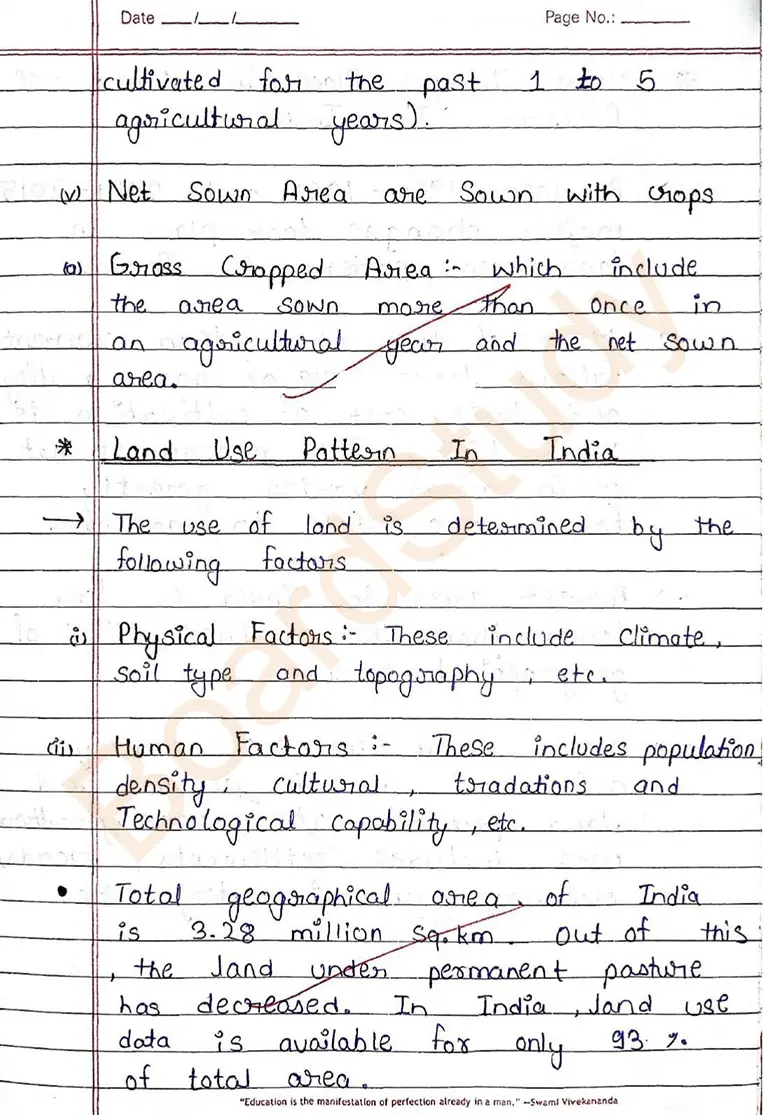 Date ___/___/___ Page No.: ______
cultivated for the past 1 to 5
agricultural years).
(v) Net Sown Area are Sown with crops
(a) Gross Cropped Area :- which include
the area sown more than once in
an agricultural year and the net sown
area.
* Land Use Pattern In India
→ The use of land is determined by the
following factors
(i) Physical Factors :- These include Climate,
soil type and topography, etc.
(ii) Human Factors :- These includes population
density, cultural, tradations and
Technological capability, etc.
• Total geographical area of India
is 3.28 million sq.km. Out of this
, the land under permanent pasture
has decreased. In India, land use
data is available for only 93 %
of total area.
"Education is the manifestation of perfection already in a man." –Swami Vivekananda
BoardStudy